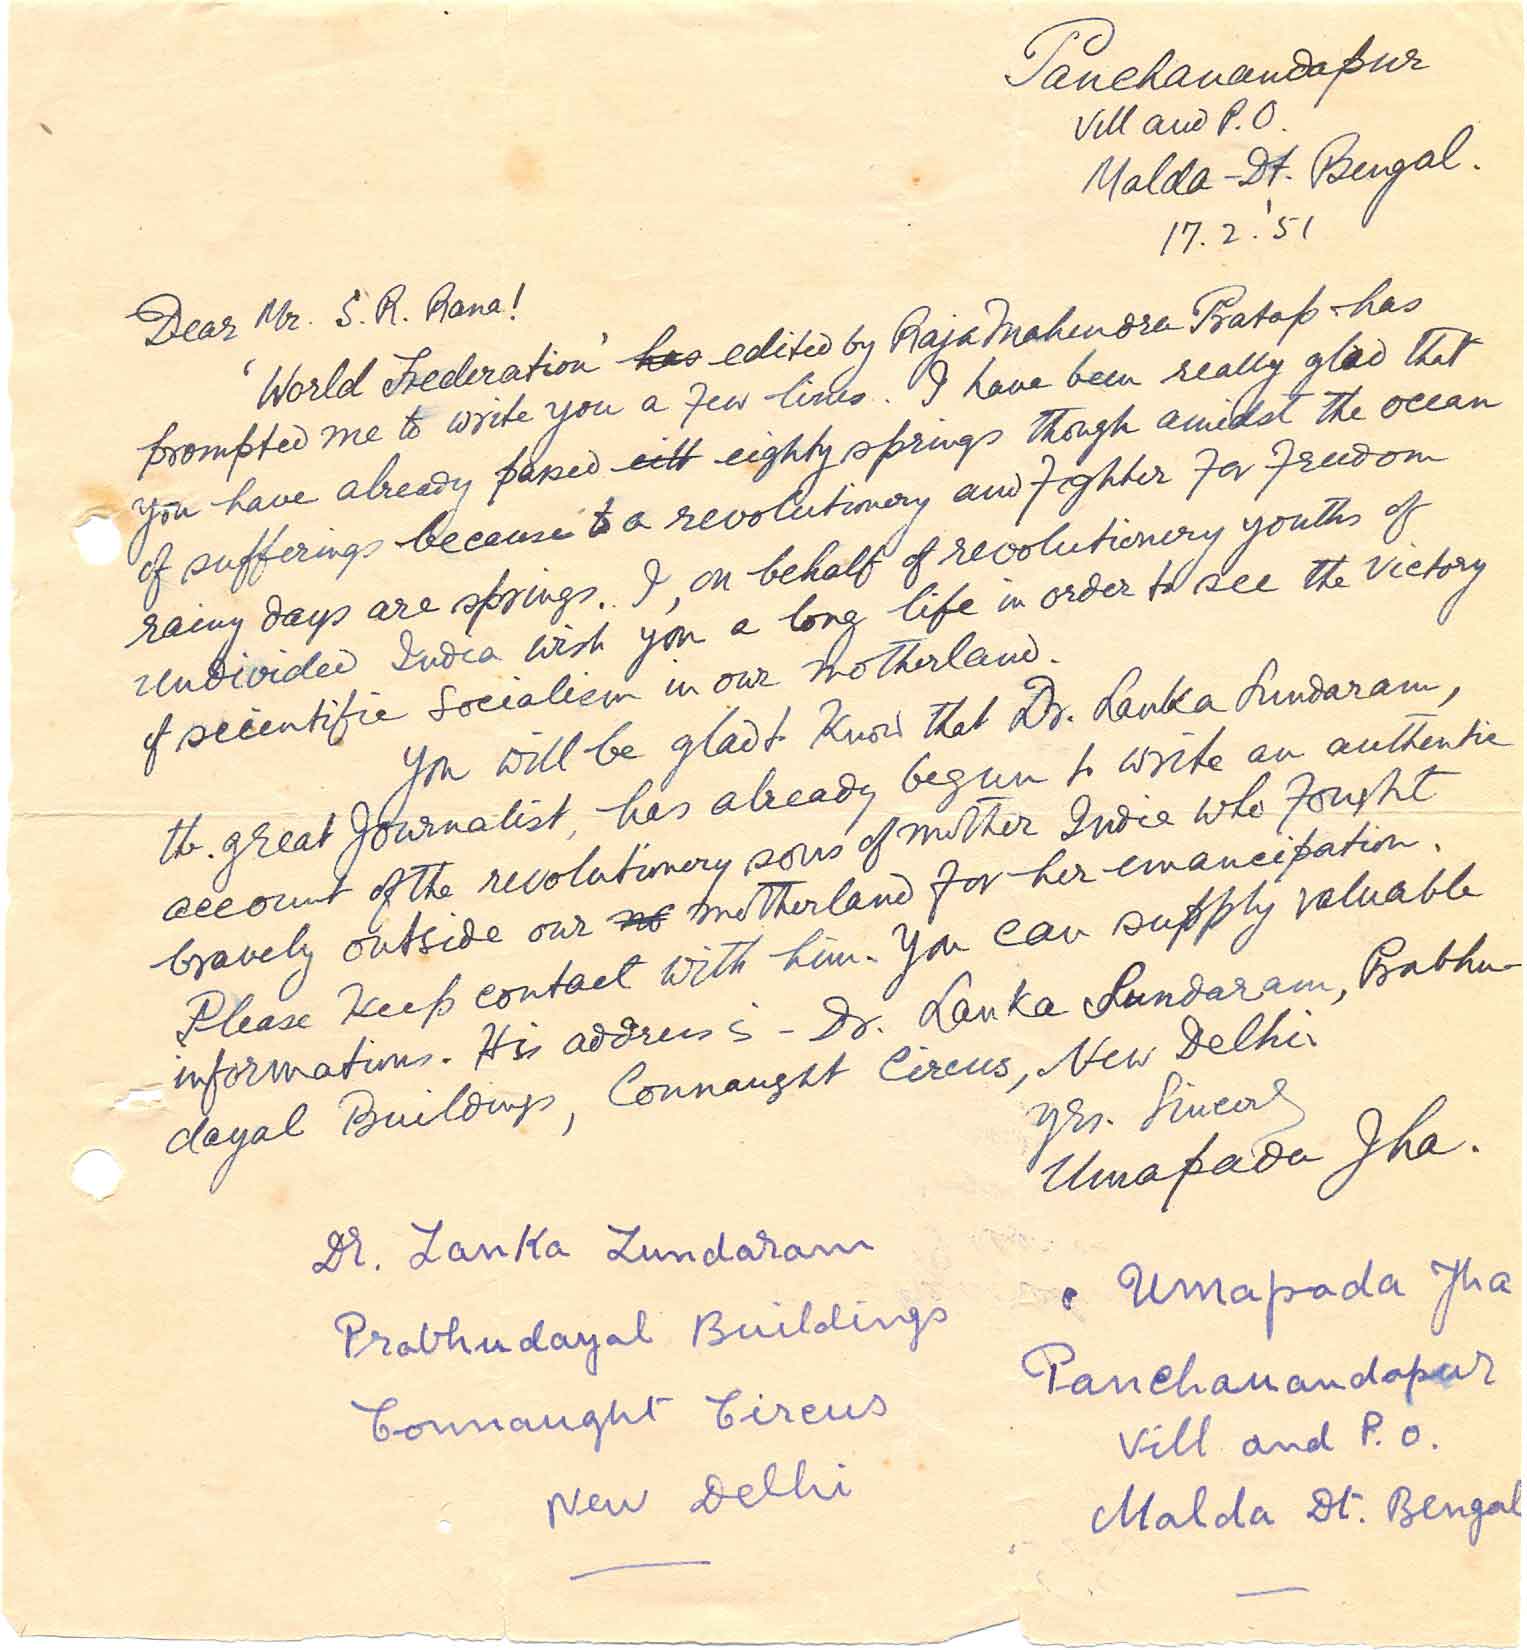 Panchanandapur
Vill and P.O.
Malda-Dt. Bengal.
17.2.'51
Dear Mr. S. R. Rana!
'World Federation' has edited by Raja Mahendra Pratap has
prompted me to write you a few lines. I have been really glad that
you have already passed eitt eighty springs though amidst the ocean
of sufferings because to a revolutionery and fighter for freedom
rainy days are springs. I, on behalf of revolutionery youths of
undivided India wish you a long life in order to see the victory
of scientific Socialism in our motherland.
You will be glad to know that Dr. Lanka Sundaram,
the great Journalist, has already begun to write an authentic
account of the revolutionery sons of mother India who fought
bravely outside our mo motherland for her emancipation.
Please keep contact with him. You can supply valuable
informations. His address is - Dr. Lanka Sundaram, Prabhu-
dayal Buildings, Connaught Circus, New Delhi.
Yrs. Sincerely
Umapada Jha.
Dr. Lanka Lundaram
Prabhudayal Buildings
Connaught Circus
New Delhi
Umapada Jha
Panchanandapur
Vill and P.O.
Malda Dt. Bengal